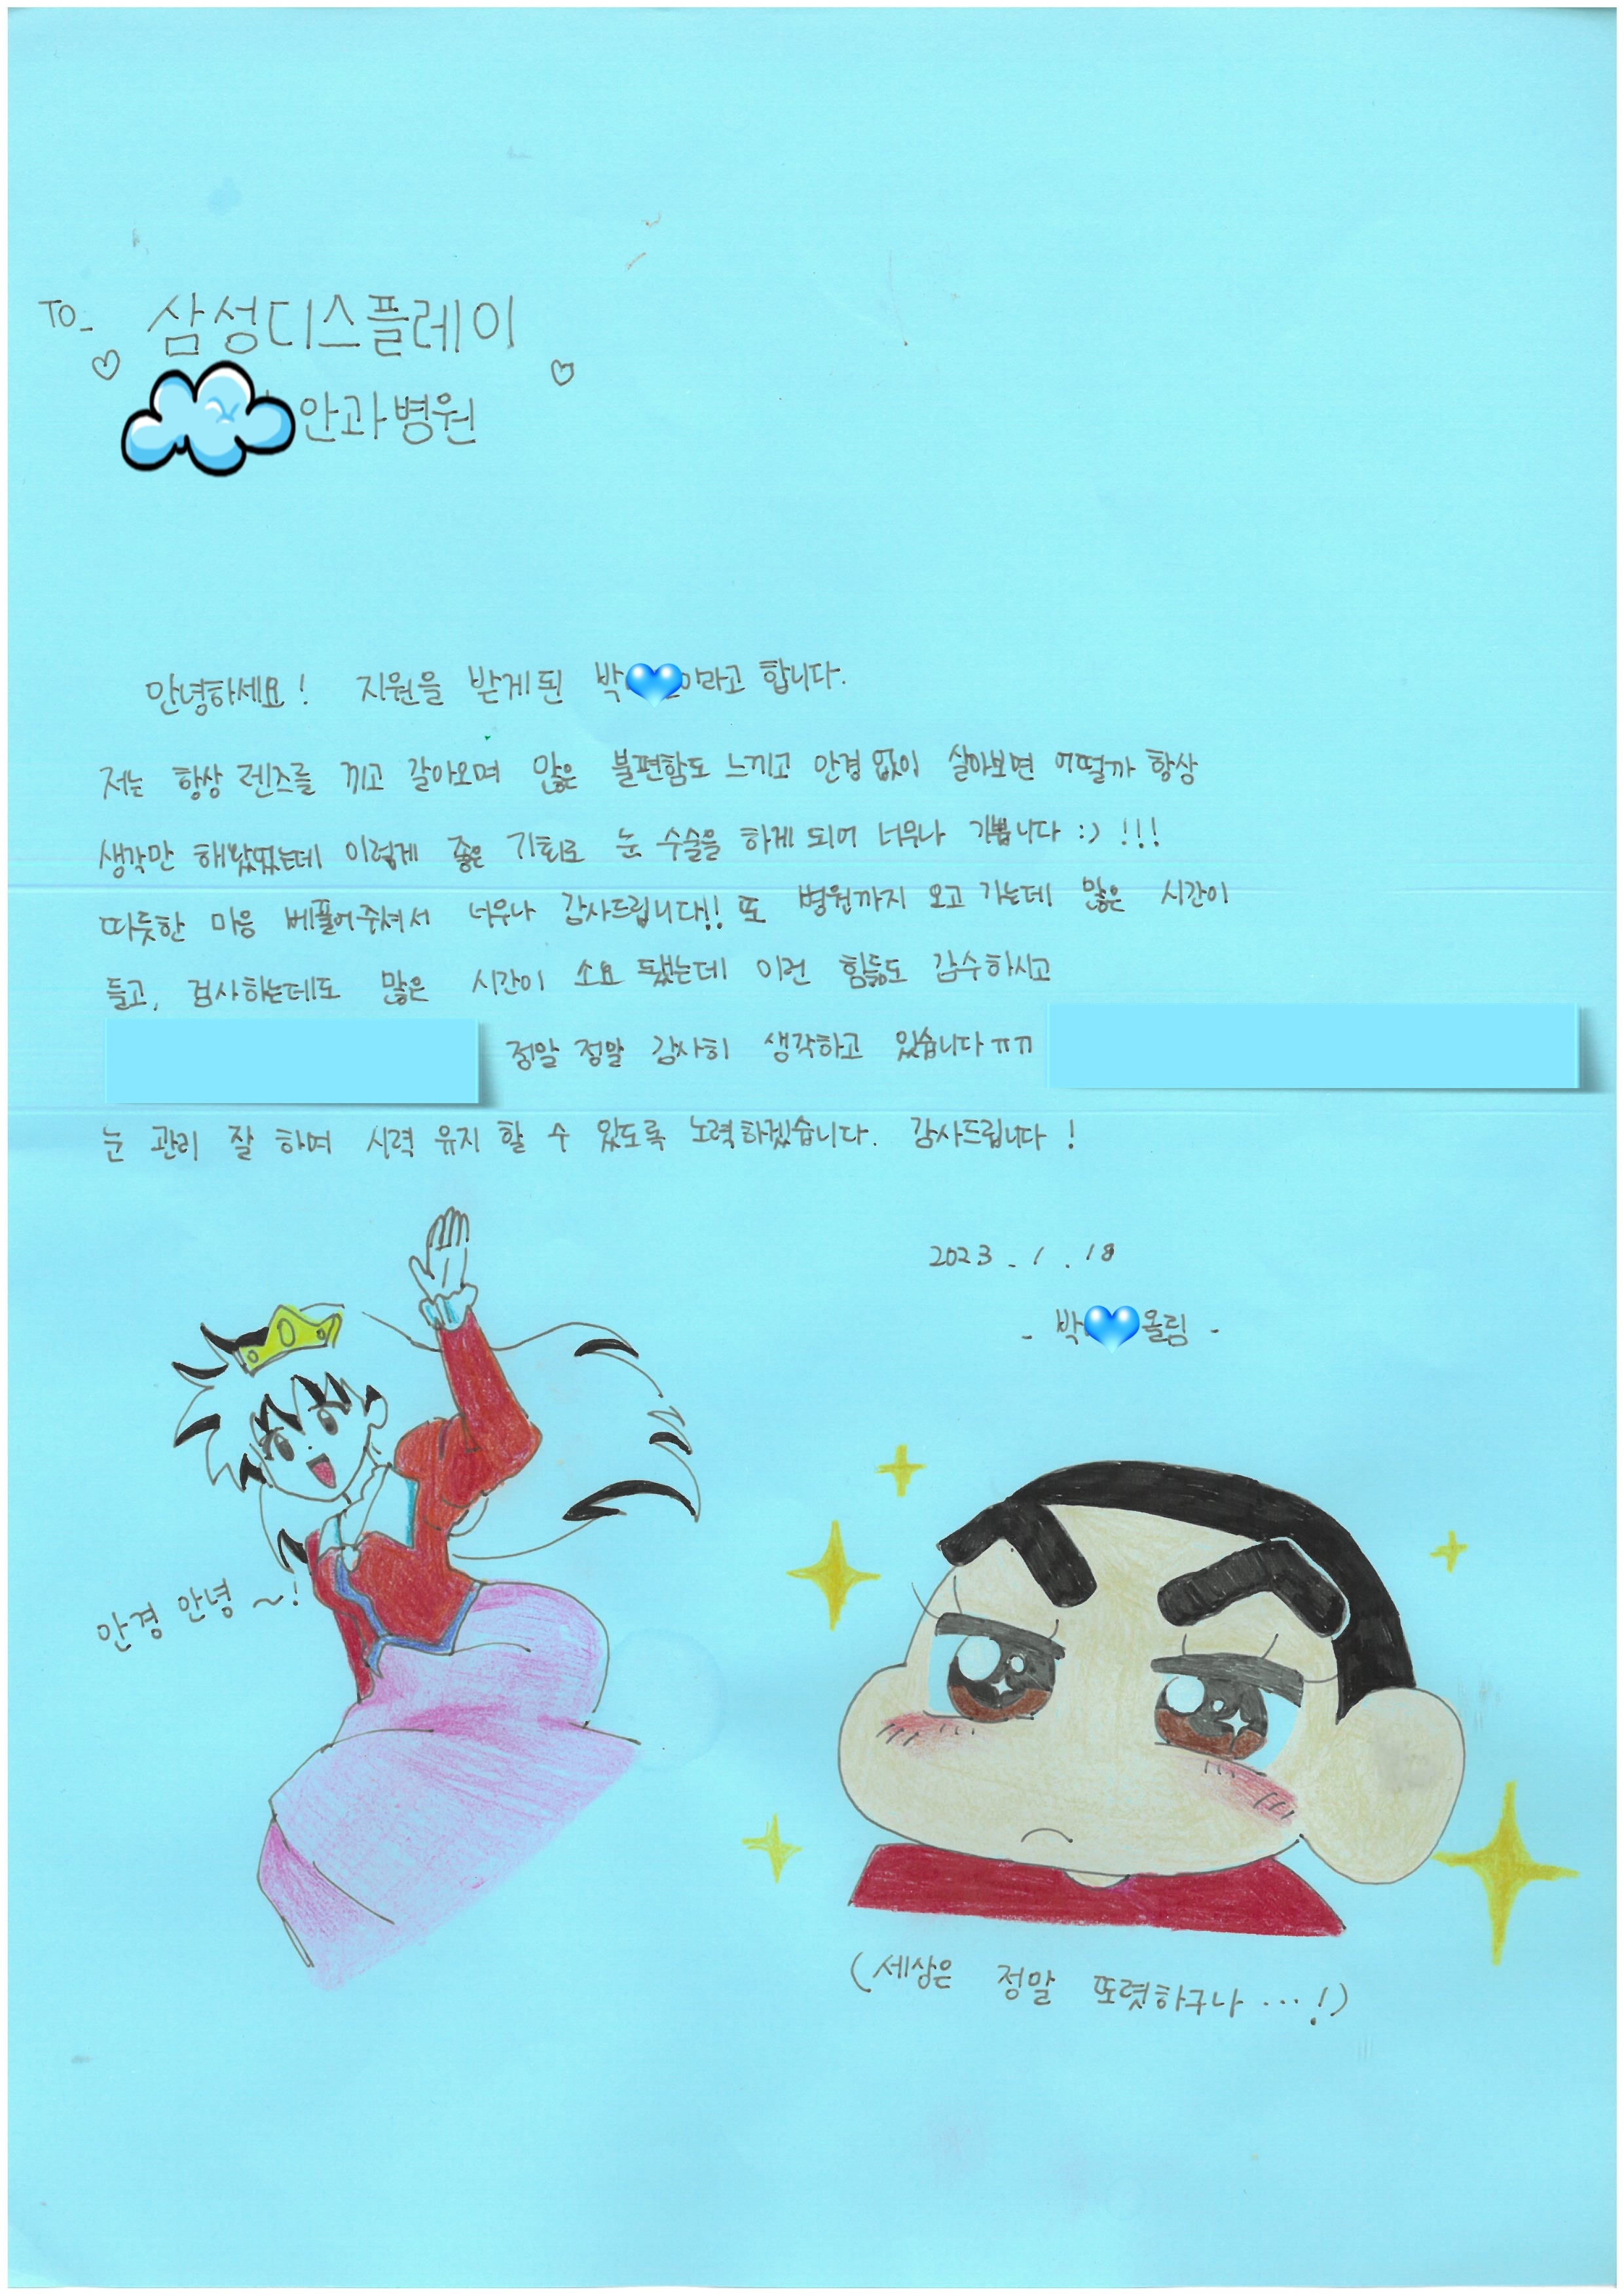 TO_ 삼성디스플레이
안과병원
안녕하세요! 지원을 받게된 박 이라고 합니다.
저는 항상 렌즈를 끼고 갈아오며 많은 불편함도 느끼고 안경 없이 살아보면 어떨까 항상
생각만 해왔었는데 이렇게 좋은 기회로 눈 수술을 하게 되어 너무나 기쁩니다 :) !!!
따듯한 마음 베풀어주셔서 너무나 감사드립니다!! 또 병원까지 오고 가는데 많은 시간이
들고, 검사하는데도 많은 시간이 소요 됐는데 이런 힘듦도 감수하시고
정말 정말 감사히 생각하고 있습니다 ㅠㅠ
눈 관리 잘 하며 시력 유지 할 수 있도록 노력하겠습니다. 감사드립니다!
2023.1.18
- 박 올림 -
안경 안녕~!
(세상은 정말 또렷하구나...!)